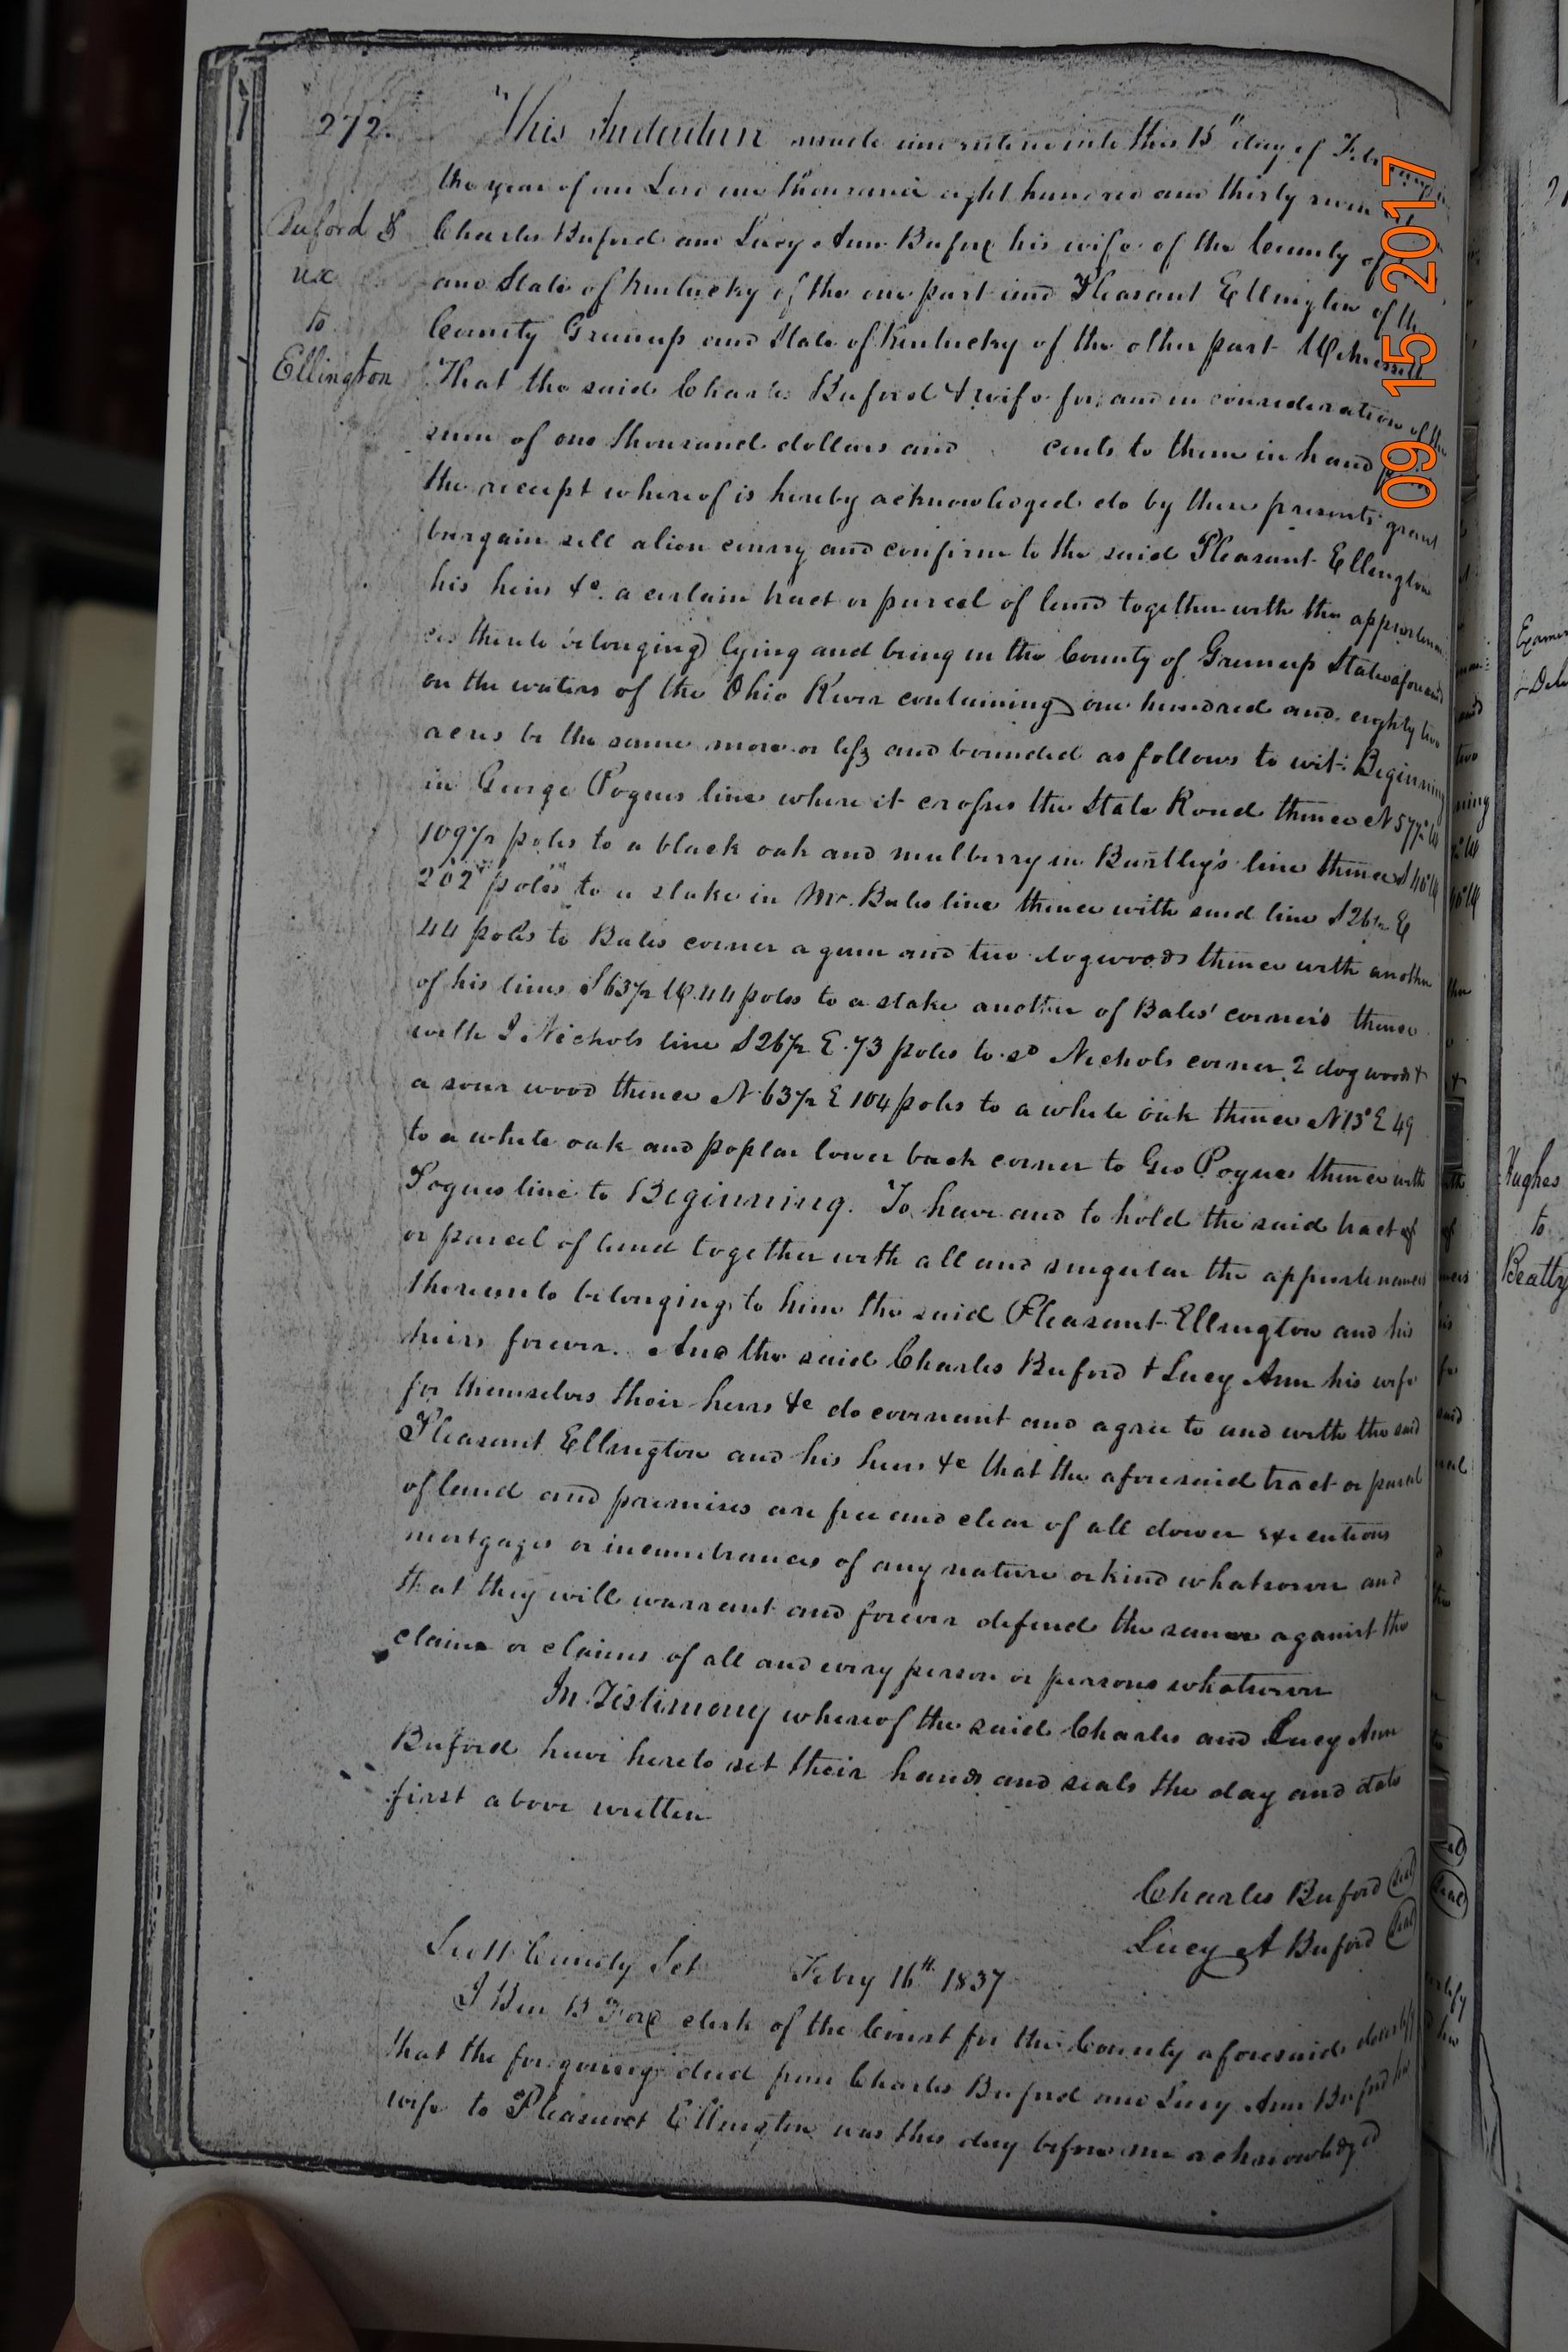 272.
Buford &
ux
to
Ellington
This Indenture made and entered into this 15" day of Feb
the year of our Lord one thousand eight hundred and thirty seven
Charles Buford and Lucy Ann Buford his wife of the County of
and State of Kentucky of the one part and Pleasant Ellington of the
County Greenup and State of Kentucky of the other part Witnesseth
That the said Charles Buford & wife for and in consideration of the
sum of one thousand dollars and cents to them in hand
the receipt whereof is hereby acknowledged do by these presents grant
bargain sell alien convey and confirm to the said Pleasant Ellington
his heirs &c. a certain tract or parcel of land together with the appurtenan
ces thereto belonging lying and being in the County of Greenup State aforesaid
on the waters of the Ohio River containing one hundred and eighty two
acres be the same more or less and bounded as follows to wit: Beginning
in George Pogues line where it crosses the State Road thence N 57½° W
109½ poles to a black oak and mulberry in Bartley's line thence S 40° W
202 poles to a stake in Mr. Bales line thence with said line S 26½ E
44 poles to Bales corner a gum and two dogwoods thence with another
of his lines S 63½ W. 44 poles to a stake another of Bales' corner's thence
with J Nichols line S 26½ E. 73 poles to sd Nichols corner 2 dogwoods &
a sour wood thence N 63½ E 104 poles to a white oak thence N 13° E 49
to a white oak and poplar lower back corner to Geo Pogues thence with
Pogues line to Beginning. To have and to hold the said tract of
or parcel of land together with all and singular the appurtenances
thereunto belonging to him the said Pleasant Ellington and his
heirs forever. And the said Charles Buford & Lucy Ann his wife
for themselves their heirs &c do covenant and agree to and with the said
Pleasant Ellington and his heirs &c that the aforesaid tract or parcel
of land and premises are free and clear of all dower executions
mortgages or incumbrances of any nature or kind whatsoever and
that they will warrant and forever defend the same against the
claim or claims of all and every person or persons whatsoever
In Testimony whereof the said Charles and Lucy Ann
Buford have hereto set their hands and seals the day and date
first above written
Charles Buford (seal)
Lucy A Buford (seal)
Scott County Sct Feby 16th 1837
I Ben B Ford clerk of the Court for the County aforesaid do certify
that the foregoing deed from Charles Buford and Lucy Ann Buford his
wife to Pleasant Ellington was this day before me acknowledged
09 15 2017
Hughes
to
Beatty